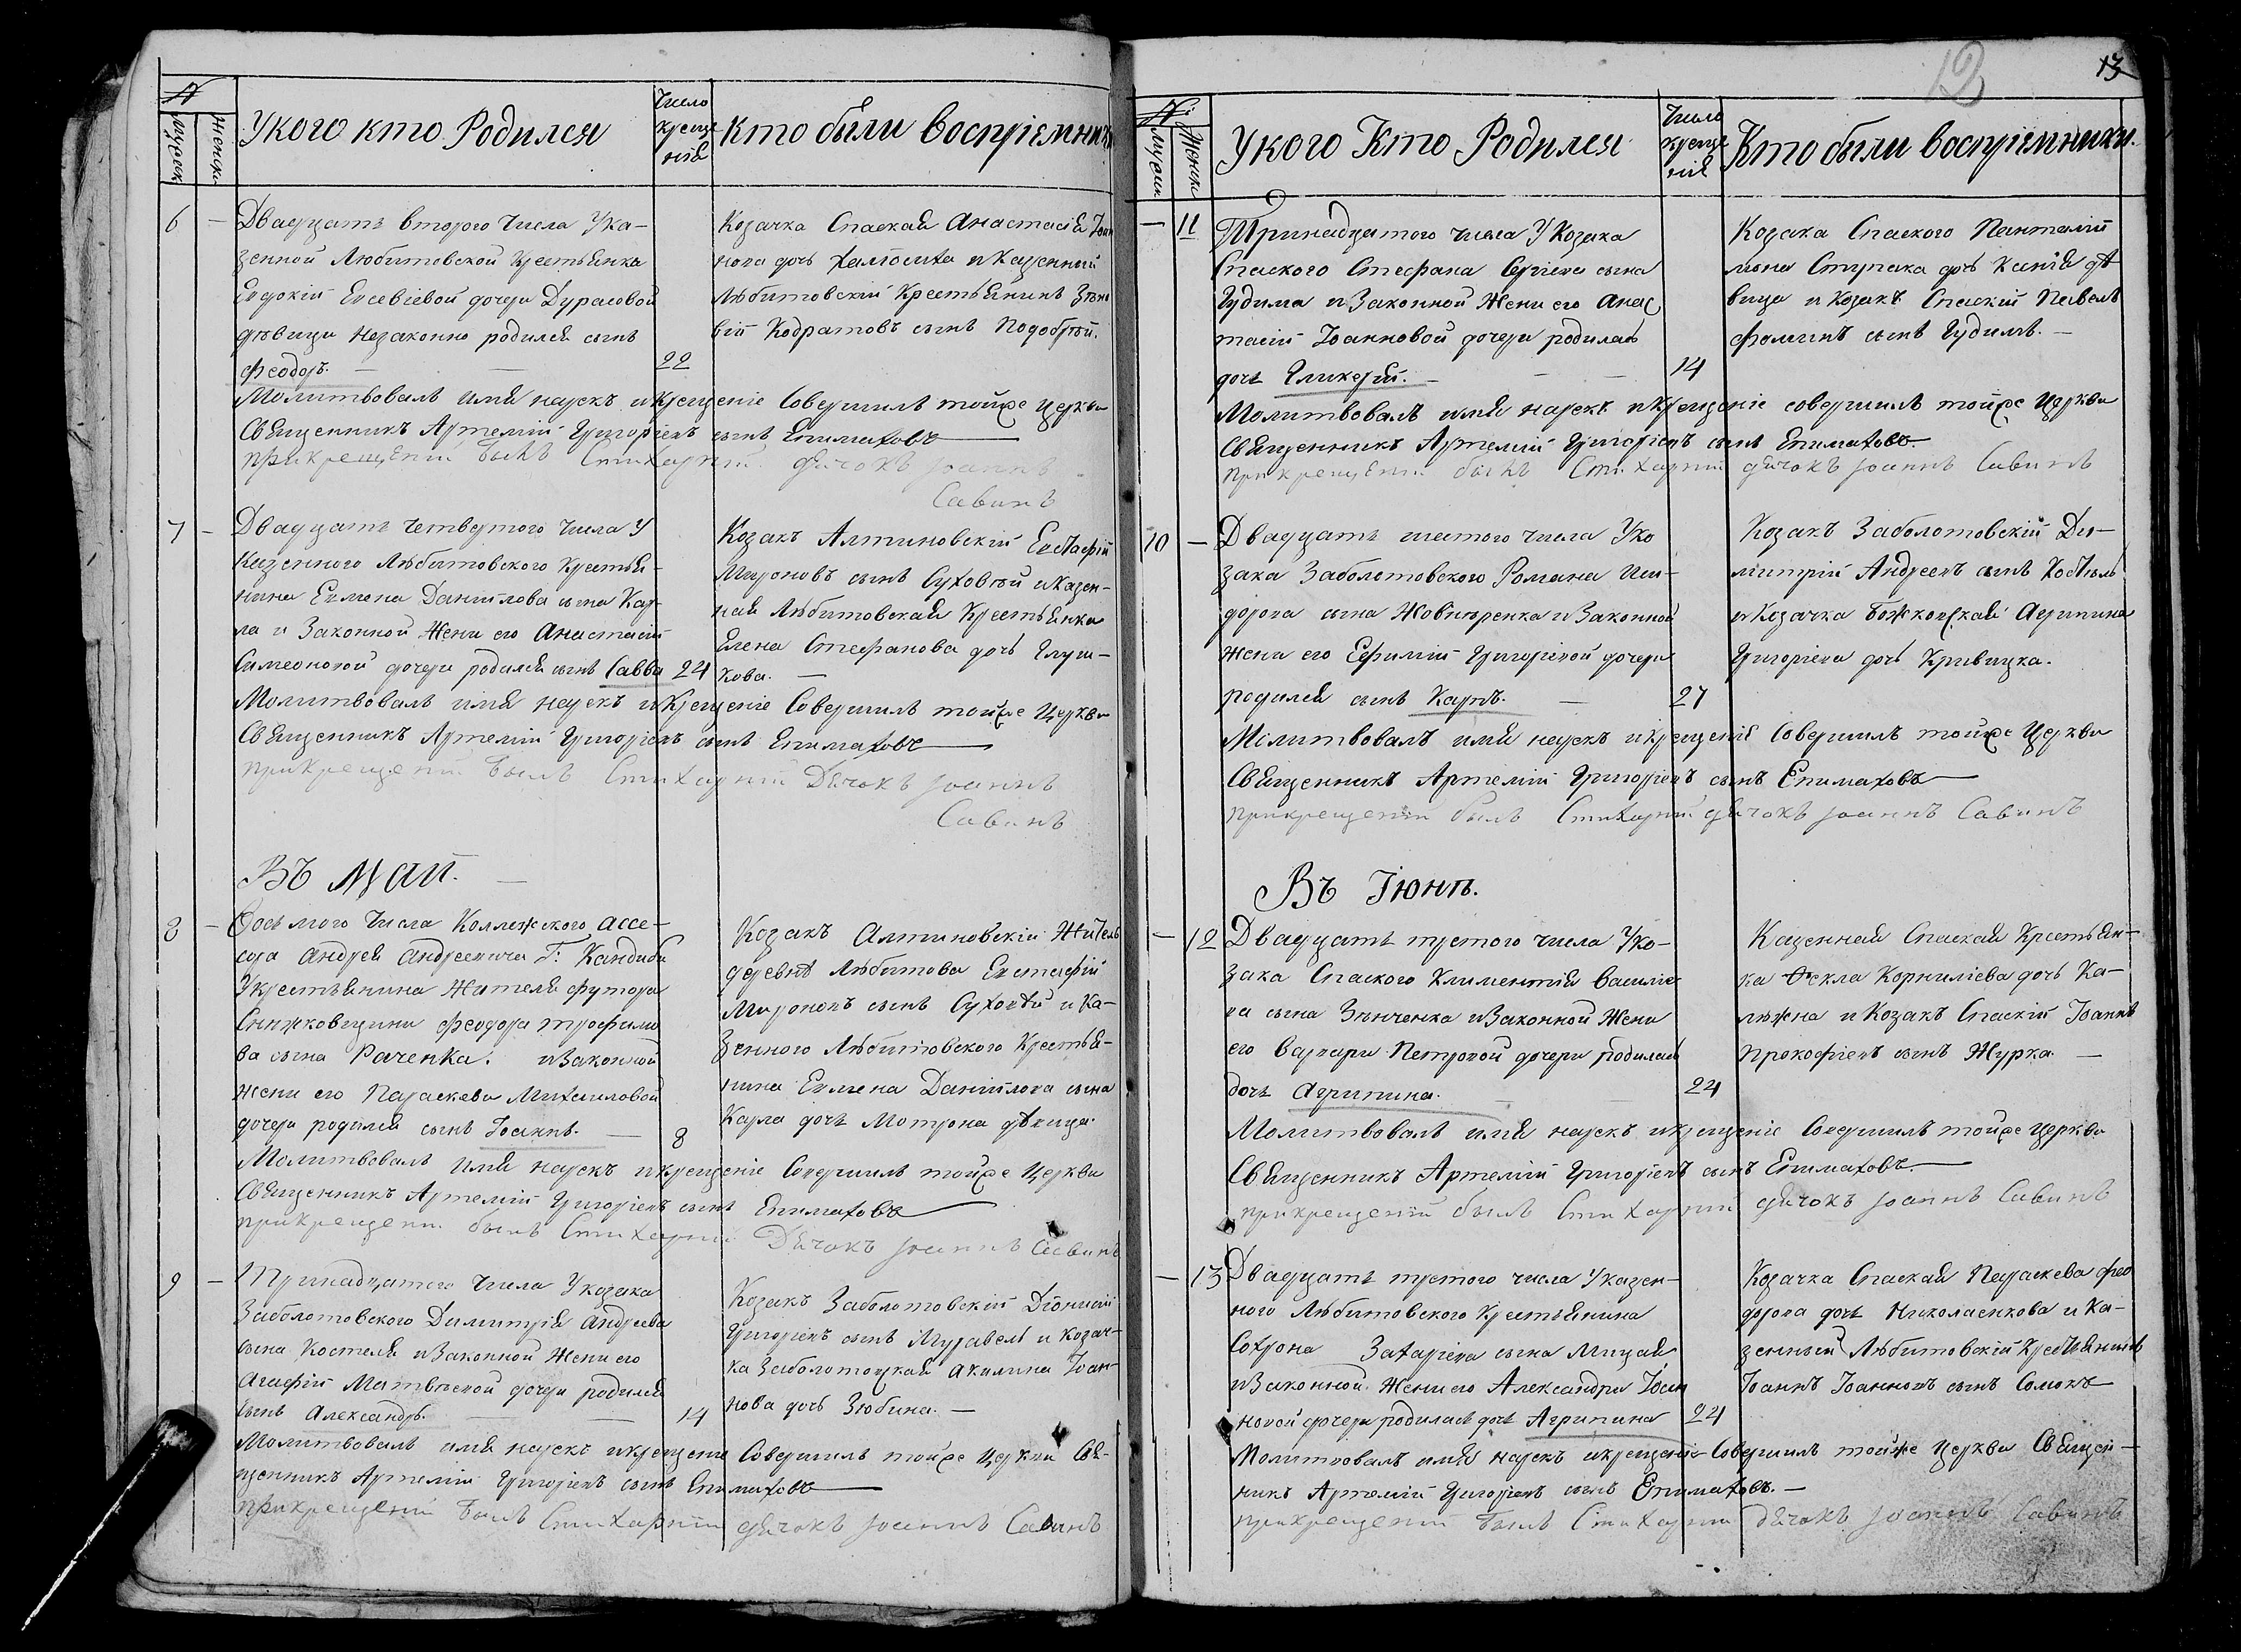 №
Мужеск
Женски
Укого кто Родился
Число крещенія
Кто были воспріемники
6 — Двадцать второго числа Ука-
зенной Любитовской Крестьянки
Евдокіи Евсевіевой дочери Дурасовой
дѣвици незаконно родился сынъ
Феодоръ. — — 22
Козачка Спаская Анастасія Іоан
нова дочь и Казенный
Любитовскій Крестьянинъ Зѣно
вій Кодратовъ сынъ Подобрѣй.
Молитвовалъ имя нарекъ икрещеніе Совершилъ тойже Церкви
Священникъ Артемій Григоріевъ сынъ Епимаховъ
прикрещеніи былъ Стихарній дячокъ Іоаннъ
Савинъ
7 — Двадцать четвертого числа У
Казенного Любитовского Крестья-
нина Евмена Даніилова сына Кар-
ла и Законной Жени его Анастасіи
Симеоновой дочери родился сынъ Савва 24
Козакъ Алтиновскій Евстафій
Мироновъ сынъ Суховѣй иказен-
ная Любитовская Крестьянка
Елена Стефанова дочь Глуш-
кова. —
Молитвовалъ имя нарекъ икрещеніе Совершилъ тойже Церкви
Священникъ Артемій Григоріевъ сынъ Епимаховъ
прикрещеніи былъ Стихарній Дячокъ Іоаннъ
Савинъ
Въ Маіи. —
8 — Восьмого числа Коллежского ассе-
сора Андрея Андреевича Г: Кандиби
Укрестьянина Жителя футора
Феодора трофимо
ва сына Раченка. иЗаконной
жени его Параскеви Михаиловой
дочери родился сынъ Іоаннъ. — 8
Козакъ Алтиновскій Житель
деревнѣ Любитова Евстафій
Мироновъ сынъ Суховѣй и Ка-
зенного Любитовского Крестья-
нина Евмена Даніилова сына
Карла дочь Мотрона дѣвица.
Молитвовалъ имя нарекъ икрещеніе Совершилъ тойже Церкви
Священникъ Артемій Григоріевъ сынъ Епимаховъ
прикрещеніи былъ Стихарній Дячокъ Іоаннъ Савинъ
9 — Тринадцатого числа Укозака
Заболотовского Димитрія Андреева
сына Костеля иЗаконной Жени его
Агафіи Матвѣевой дочери родился
сынъ Александръ. — — 14
Козакъ Заболотовскій Діонисій
Григоріевъ сынъ Муравель и Козач-
ка Заболотовская Акилина Іоан-
нова дочь Зюбина. —
Молитвовалъ имя нарекъ икрещеніе Совершилъ тойже Церкви Свя-
щенникъ Артемій Григоріевъ сынъ Епимаховъ
прикрещеніи былъ Стихарній дячокъ Іоаннъ Савинъ
12
13
№
Мужеск
Женски
Укого Кто Родился
Число крещенія
Кто были воспріемники.
— 11 Тринадцатого числа У Козака
Спаского Стефана Сергіева сына
Гудима и Законной Жени его Анас
тасіи Іоанновой дочери родилась
дочь Гликерія. — — — 14
Козака Спаского Пантелій
мона Ступака дочь Ксенія дѣ
вица и Козакъ Спаскій Павелъ
Фоминъ сынъ Гудимъ. —
Молитвовалъ имя нарекъ икрещеніе совершилъ тойже Церкви
Священникъ Артемій Григоріевъ сынъ Епимаховъ
прикрещеніи былъ Стихарній дячокъ Іоаннъ Савинъ
10 — Двадцать шестого числа Уко
зака Заболотовского Романа Иси-
дорова сына иЗаконной
жени его Ефиміи Григоріевой дочери
родился сынъ Карпъ. — 27
Козакъ Заболотовскій Ди-
митрій Андреевъ сынъ Костѣль
и Козачка Божковская Агрипина
Григоріева дочь Кривицка.
Мілитвовалъ имя нарекъ икрещеніе Совершилъ тойже Церкви
Священникъ Артемій Григоріевъ сынъ Епимаховъ
прикрещеніи былъ Стихарній дячокъ Іоаннъ Савинъ
Въ Іюнѣ.
— 12 Двадцать третого числа Уко-
зака Спаского Климентія Василіе
ва сына Зѣнченка иЗаконной Жени
его Варвари Петровой дочери родилась
дочь Агрипина. — — 24
Казенная Спаская Крестьян-
ка Фекла Корниліева дочь Ка-
люжна и Козакъ Спаскій Іоаннъ
Прокофіевъ сынъ Журка. —
Молитвовалъ имя нарекъ икрещеніе Совершилъ тойже Церкви
Священникъ Артемій Григоріевъ сынъ Епимаховъ.
прикрещеніи былъ Стихарній дячокъ Іоаннъ Савинъ
— 13 Двадцать третого числа Указен-
ного Любитовского Крестьянина
Софрона Захаріева сына Мицая
иЗаконной Жени его Александри Іоан
новой дочери родилась дочь Агрипина 24
Козачка Спаская Параскева Фео
дорова дочь Николаенкова и Ка-
зенный Любитовскій Крестьянинъ
Іоаннъ Іоанновъ сынъ Сомокъ
Молитвовалъ имя нарекъ икрещеніе Совершилъ тойже Церкви Священ-
никъ Артемій Григоріевъ сынъ Епимаховъ. —
прикрещеніи былъ Стихарній дячокъ Іоаннъ Савинъ